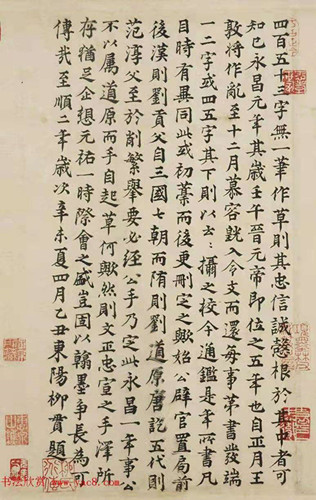 四百五十三字無一筆作草則其忠信誠慤根於其中者可
知已永昌元年其歲壬午晉元帝即位之五年也自正月王
敦將作亂至十二月慕容皝入令支而還每事第書發端
一二字或四五字其下則以云云攝之校今通鑑是年所書凡
目時有異同此或初藁而後更刪定之歟始公辟官置局前
後漢則劉貢父自三國七朝而隋則劉道原唐訖五代則
范淳父至於削繁舉要必經公手乃定此永昌一年事公
不以屬道原而手自起草何歟然則文正忠宣之手澤所
存猶足企想元祐一時際會之盛豈固以翰墨爭長為可
傳哉至順二年歲次辛未夏四月乙丑東陽柳貫題
书法欣赏